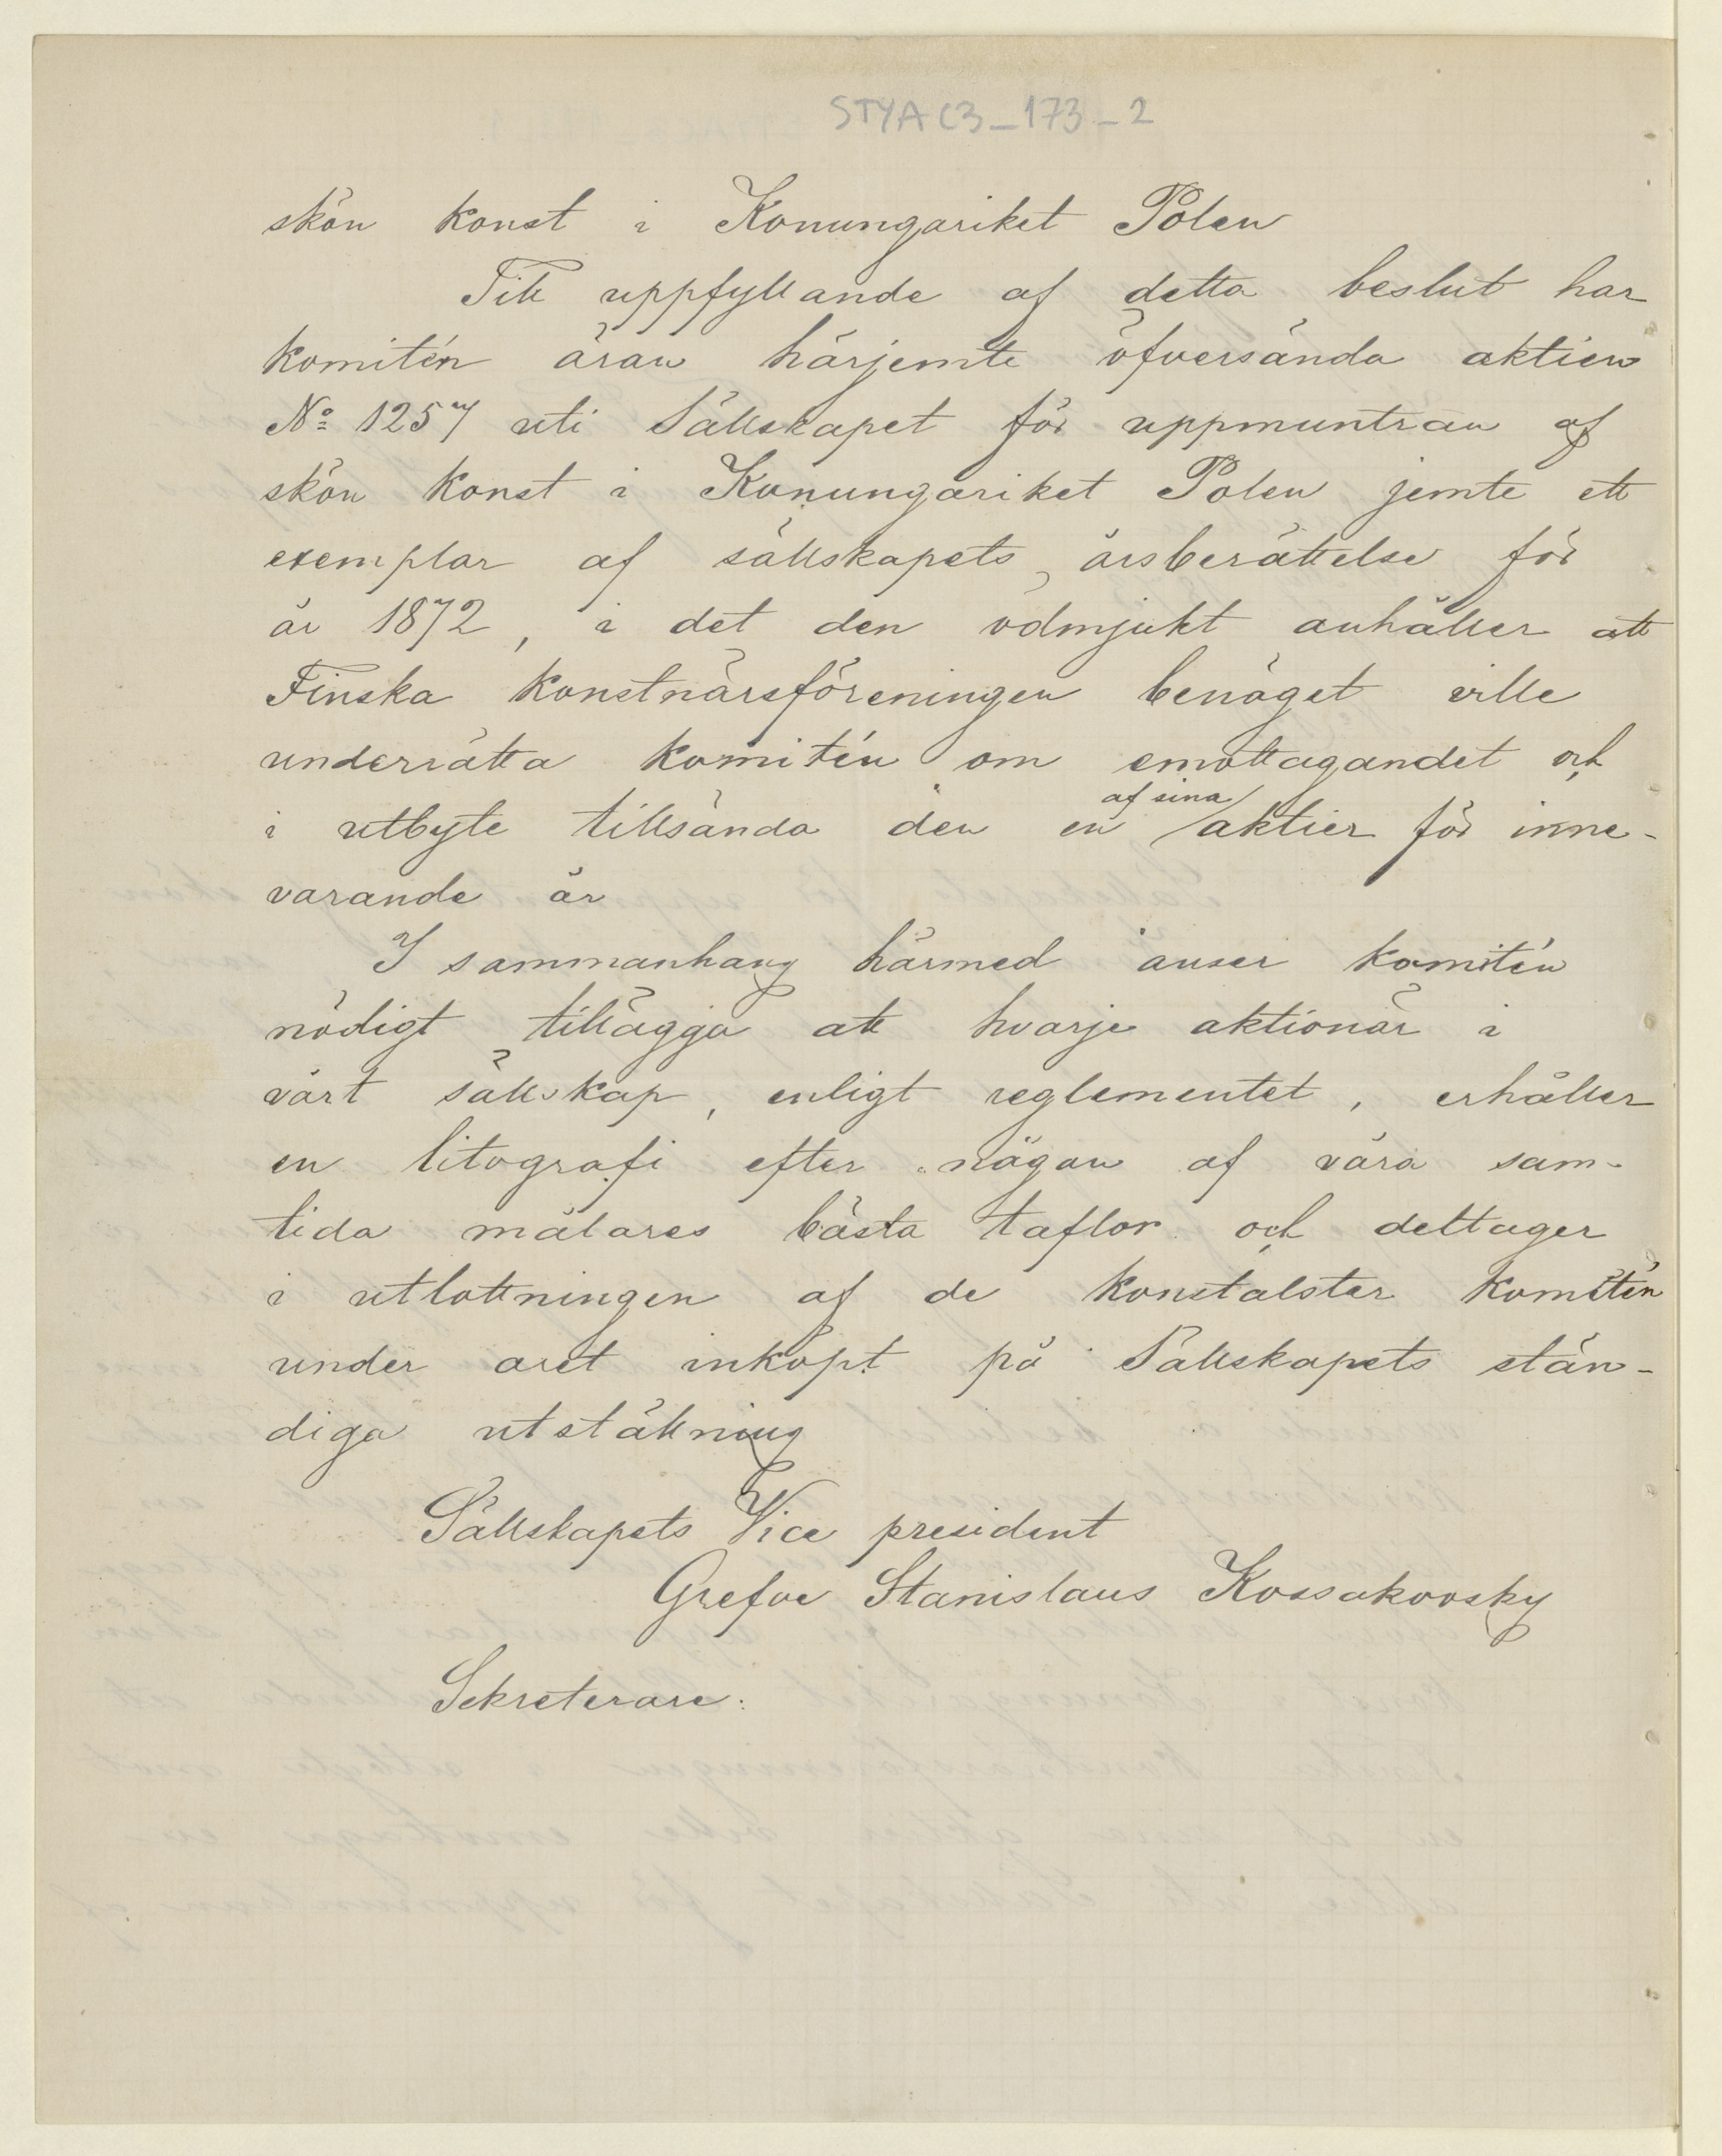 STYA C3_173_2
skön konst i Konungariket Polen
Till uppfyllande af detta beslut har
komitén äran härjemte öfversända aktien
No 1257 uti Sällskapet för uppmuntran af
skön konst i Konungariket Polen jemte ett
exemplar af sällskapets årsberättelse för
år 1872, i det den ödmjukt anhåller att
Finska konstnärsföreningen benäget ville
underrätta komitén om emottagandet och
af sina
i utbyte tillsända den en aktier för inne-
varande år
I sammanhang härmed anser komitén
nödigt tillägga att hvarje aktionär i
vårt sällskap, enligt reglementet, erhåller
en litografi efter någon af våra sam-
tida målares bästa taflor och deltager
i utlottningen af de konstalster komitén
under aret inköpt på Sällskapets stän-
diga utställning
Sällskapets Vice president
Grefve Stanislaus Kossakovsky
Sekreterare: